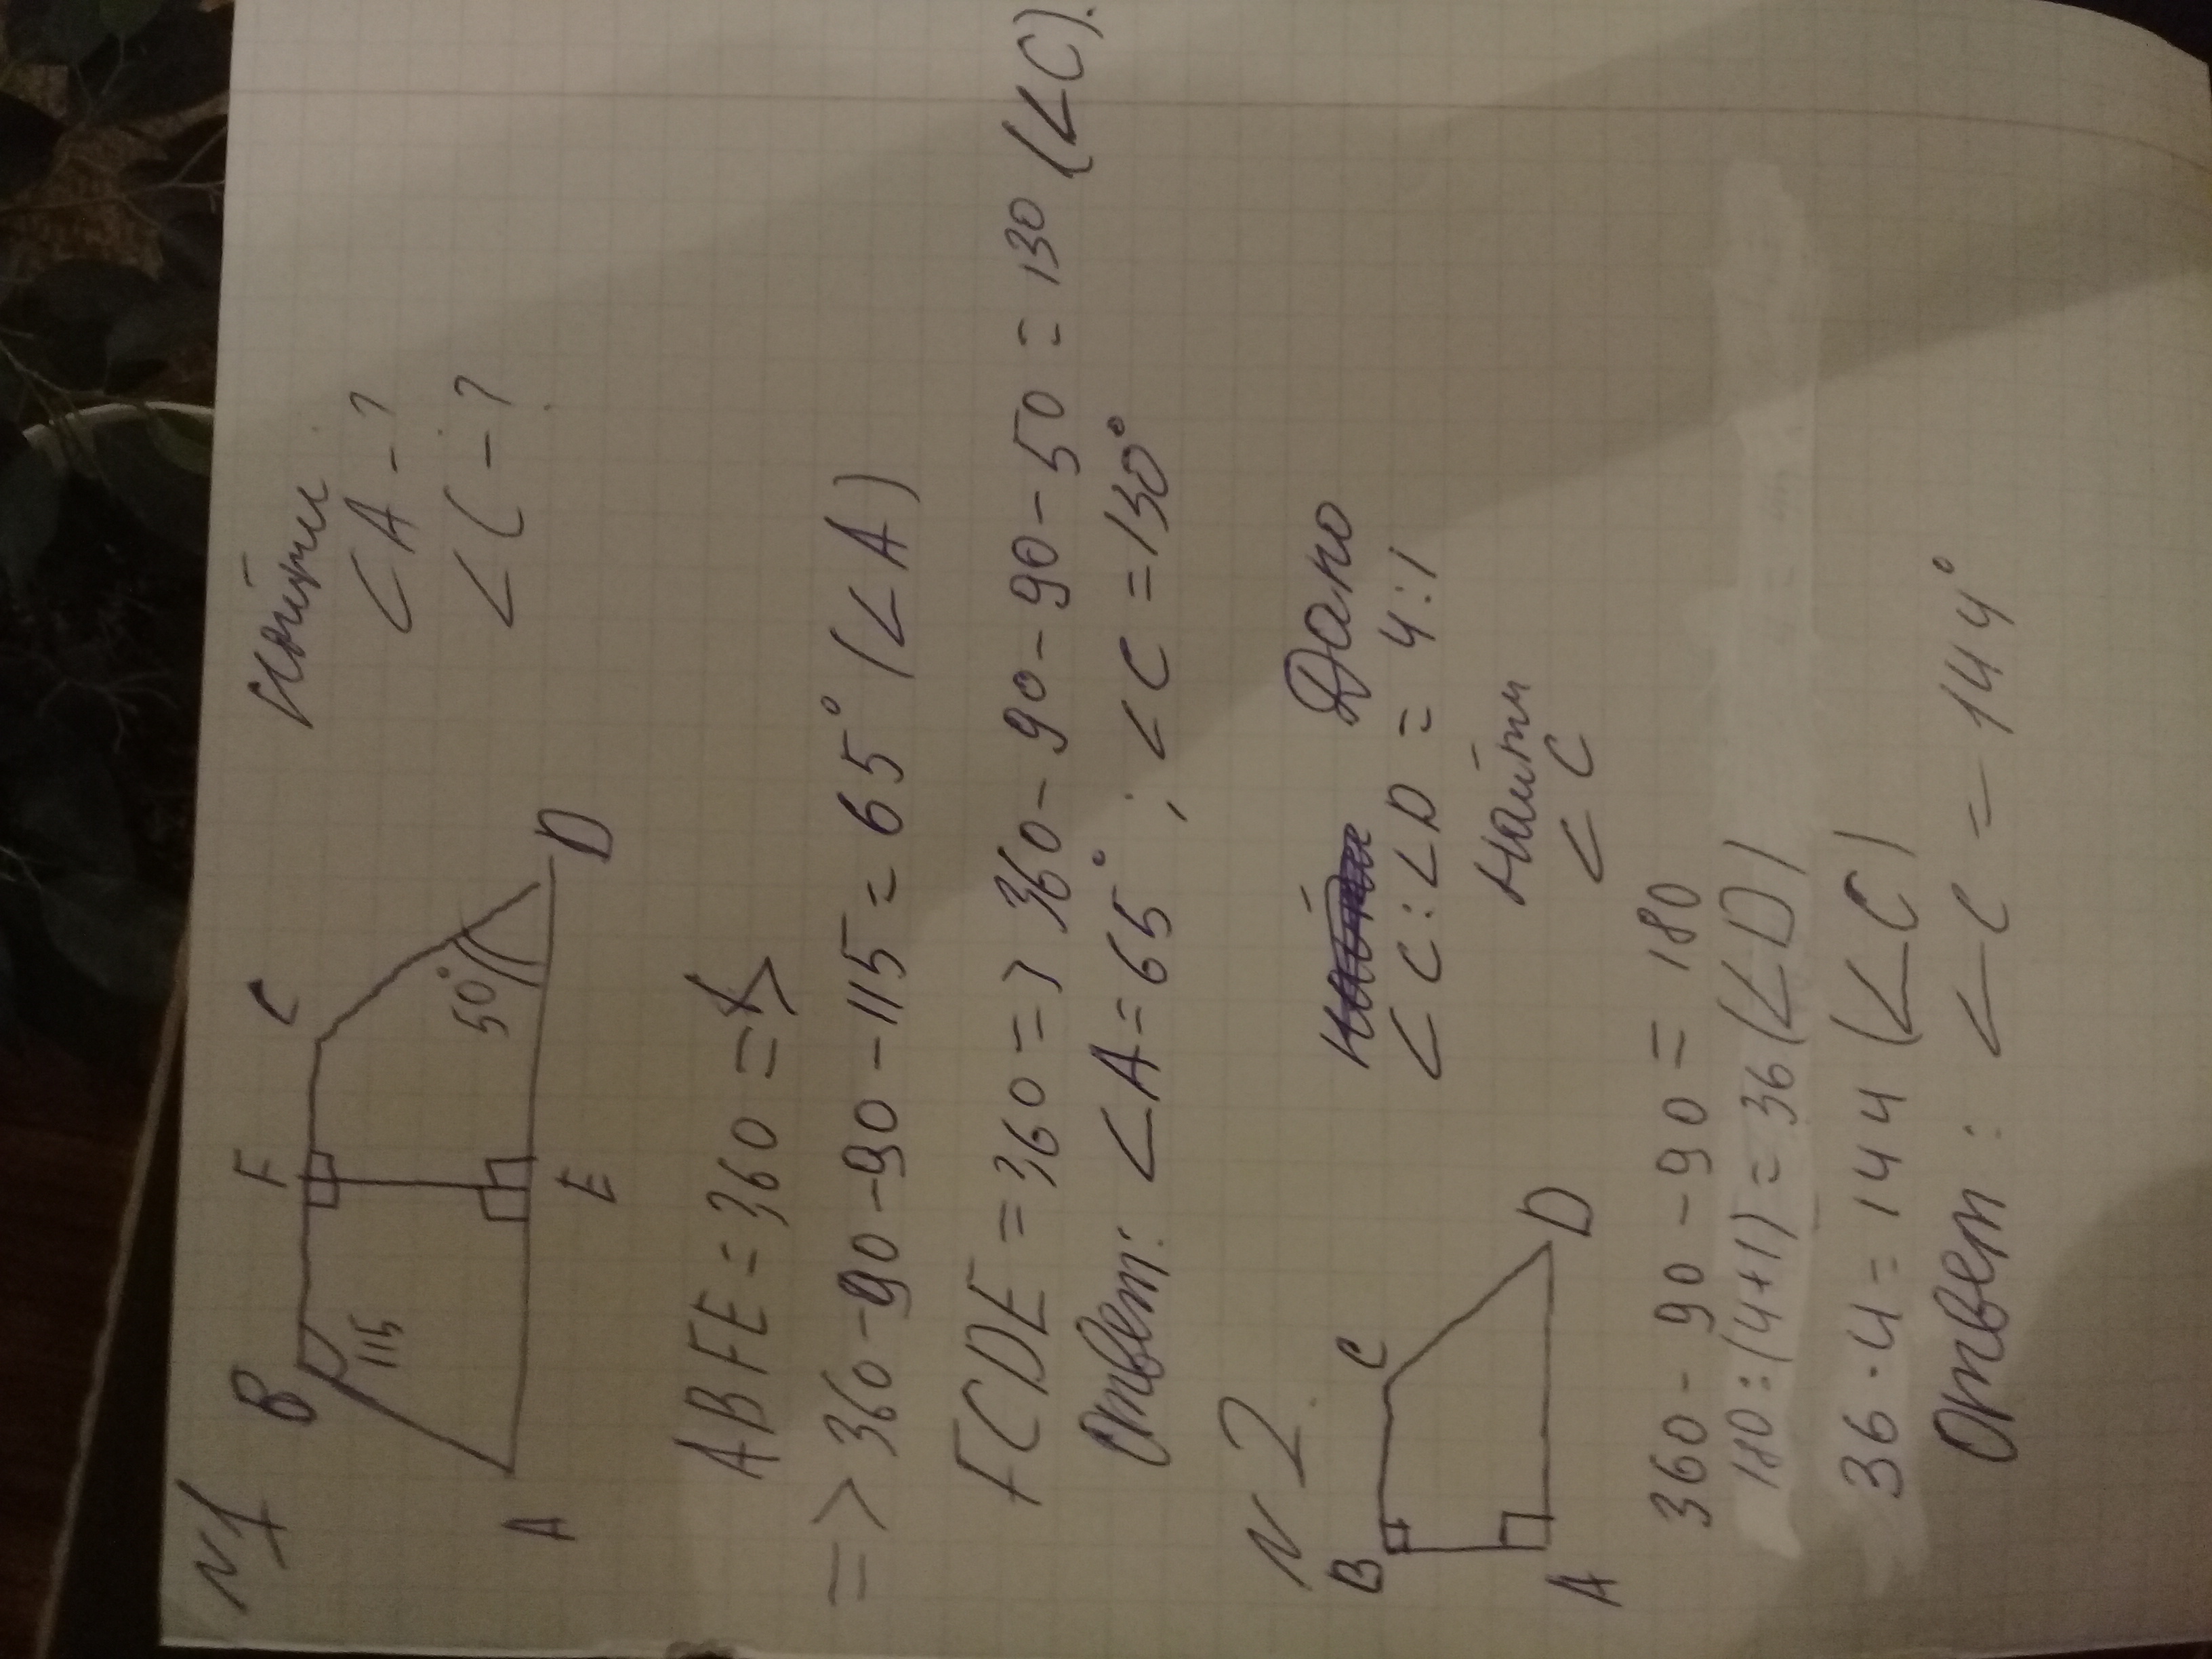 N1
B F C
115
50°
A E D
Найти
<A - ?
<C - ?
ABFE = 360 =>
=> 360 - 90 - 90 - 115 = 65° (<A)
FCDE = 360 => 360 - 90 - 90 - 50 = 130 (<C).
Ответ: <A = 65° ; <C = 130°
N2
B C
A D
Найти Дано
<C : <D = 4:1
Найти
<C
360 - 90 - 90 = 180
180 : (4+1) = 36 (<D)
36 · 4 = 144 (<C)
Ответ: <C = 144°